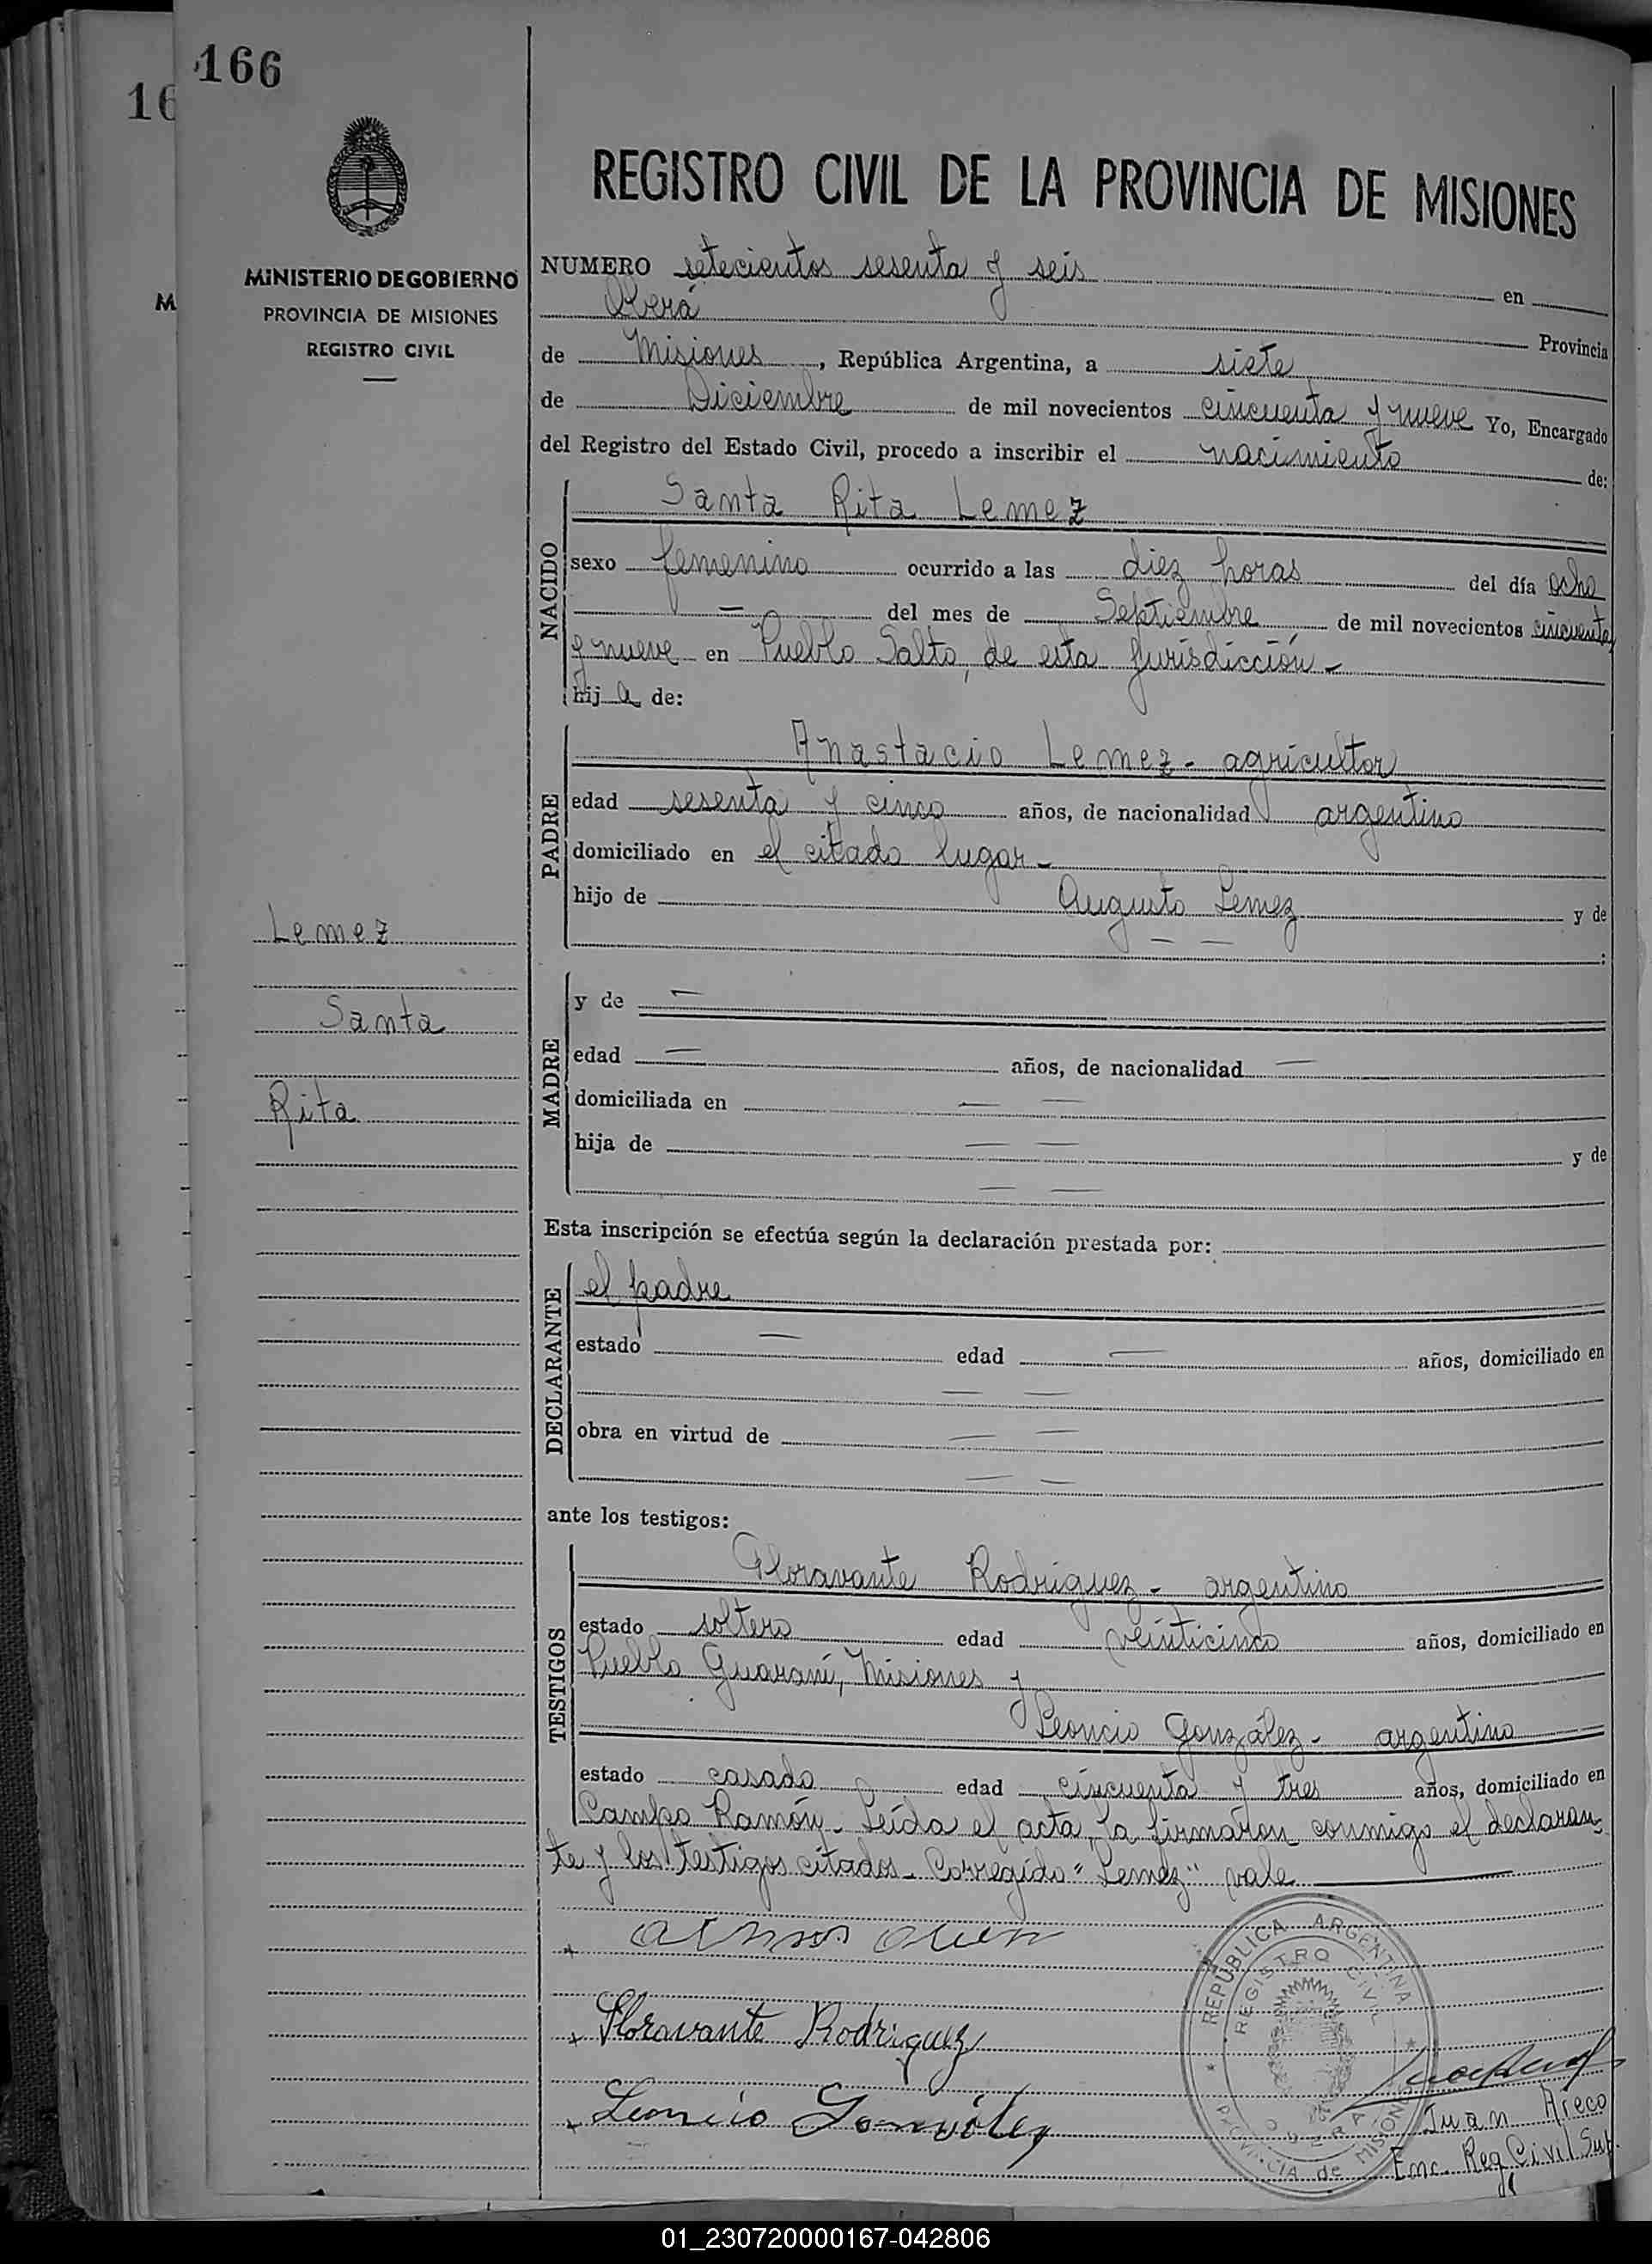 166
16
MINISTERIO DE GOBIERNO
PROVINCIA DE MISIONES
REGISTRO CIVIL
M
REGISTRO CIVIL DE LA PROVINCIA DE MISIONES
NUMERO setecientos sesenta y seis en
Oberá Provincia
de Misiones, República Argentina, a siete
de Diciembre de mil novecientos cincuenta y nueve Yo, Encargado
del Registro del Estado Civil, procedo a inscribir el nacimiento de:
NACIDO
Santa Rita Lemez
sexo femenino ocurrido a las diez horas del día ocho
— del mes de Septiembre de mil novecientos cincuenta
y nueve en Pueblo Salto, de esta jurisdicción -
hija de:
PADRE
Anastacio Lemez - agricultor
edad sesenta y cinco años, de nacionalidad argentino
domiciliado en el citado lugar -
hijo de Augusto Lemez y de
— — :
Lemez
Santa
Rita
MADRE
y de —
edad — años, de nacionalidad —
domiciliada en — —
hija de — — y de
— —
Esta inscripción se efectúa según la declaración prestada por:
DECLARANTE
el padre
estado — edad — años, domiciliado en
— —
obra en virtud de — —
— —
ante los testigos:
TESTIGOS
Floravante Rodriguez - argentino
estado soltero edad veinticinco años, domiciliado en
Pueblo Guaraní, Misiones y
Leoncio González - argentino
estado casado edad cincuenta y tres años, domiciliado en
Campo Ramón - Leída el acta, la firmaron conmigo el declaran-
te y los testigos citados - Corregido "Lemez" vale
Floravante Rodriguez
Leoncio González
REPÚBLICA ARGENTINA
REGISTRO CIVIL
OBERA
PROVINCIA de MISIONES
Juan Areco
Enc. Reg Civil Sup.
01_230720000167-042806